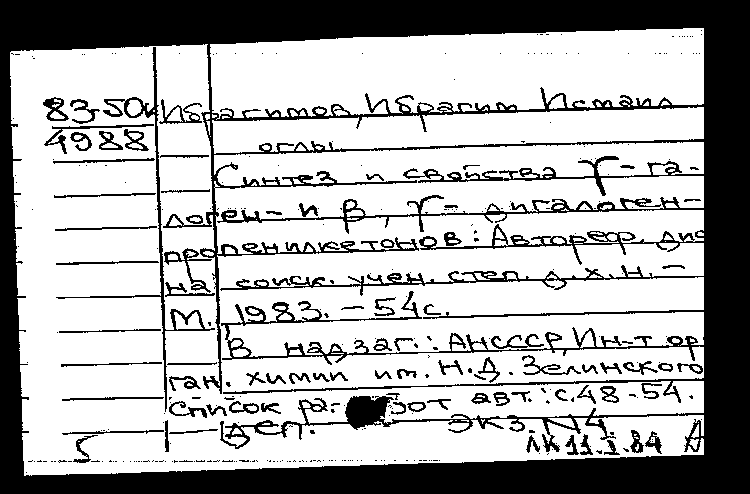 83-50к Ибрагимов, Ибрагим Исмаил
4988 оглы.
Синтез и свойства γ-га-
логен- и β, γ- дигалоген-
пропенилкетонов: Автореф. дис
на соиск. учен. степ. д.х.н. -
М. 1983. - 54с.
В надзаг.: АНСССР, Ин-т ор
ган. химии им. Н.Д. Зелинского
Список ра- бот авт.: с.48-54.
ДСП. ЭКЗ. N4
5 ЛК 11.I.84